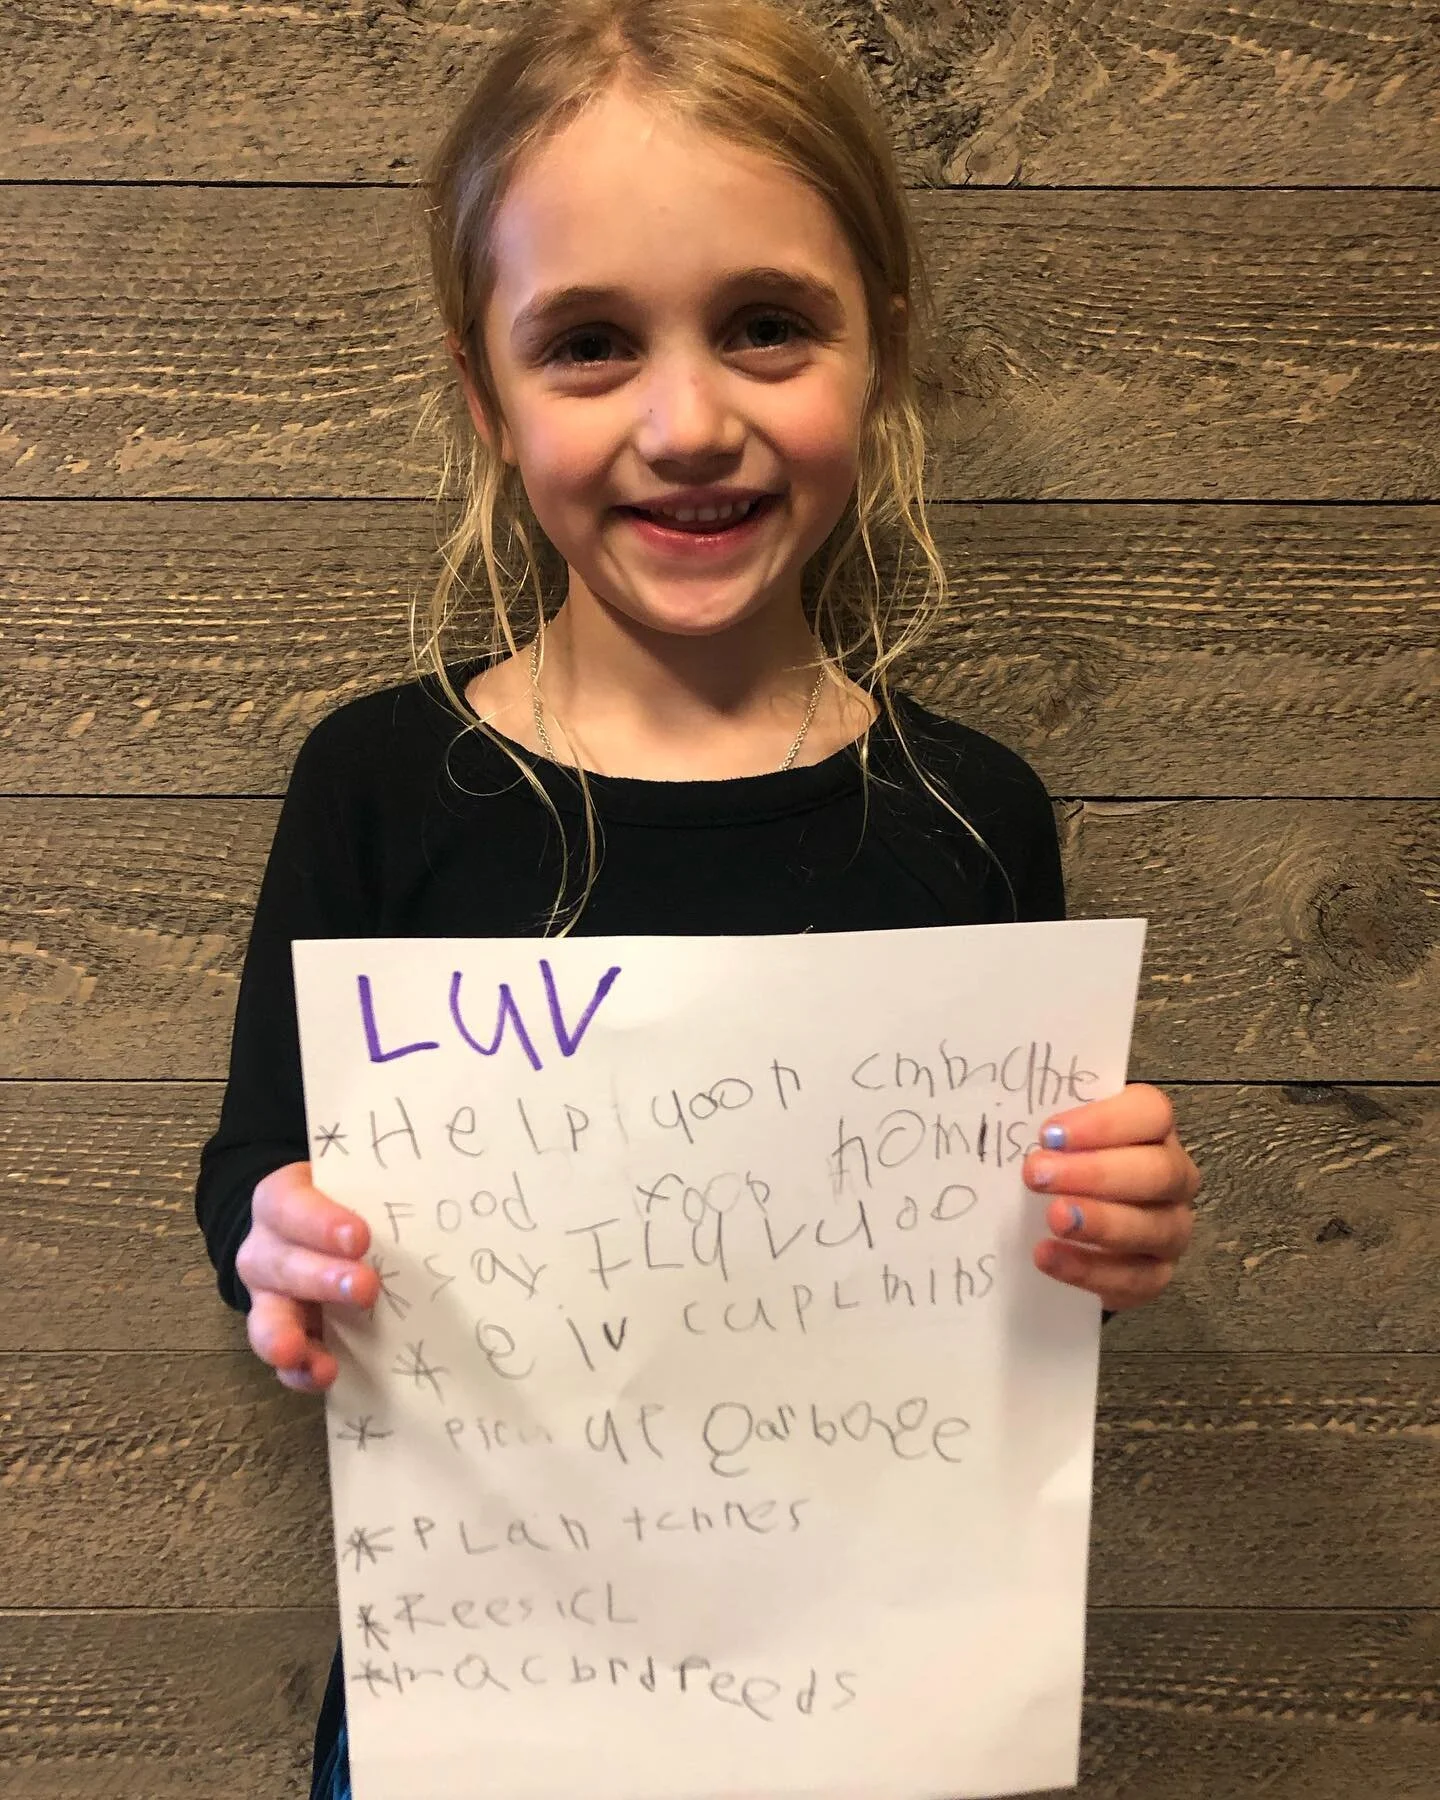 LUV
*Help yoor cmmqnte
Food foor homlis
*Say I Luv yoo
*Giv cuplmins
*Pick up garbage
*PLan tchres
*ReesicL
*mac brdfeeds